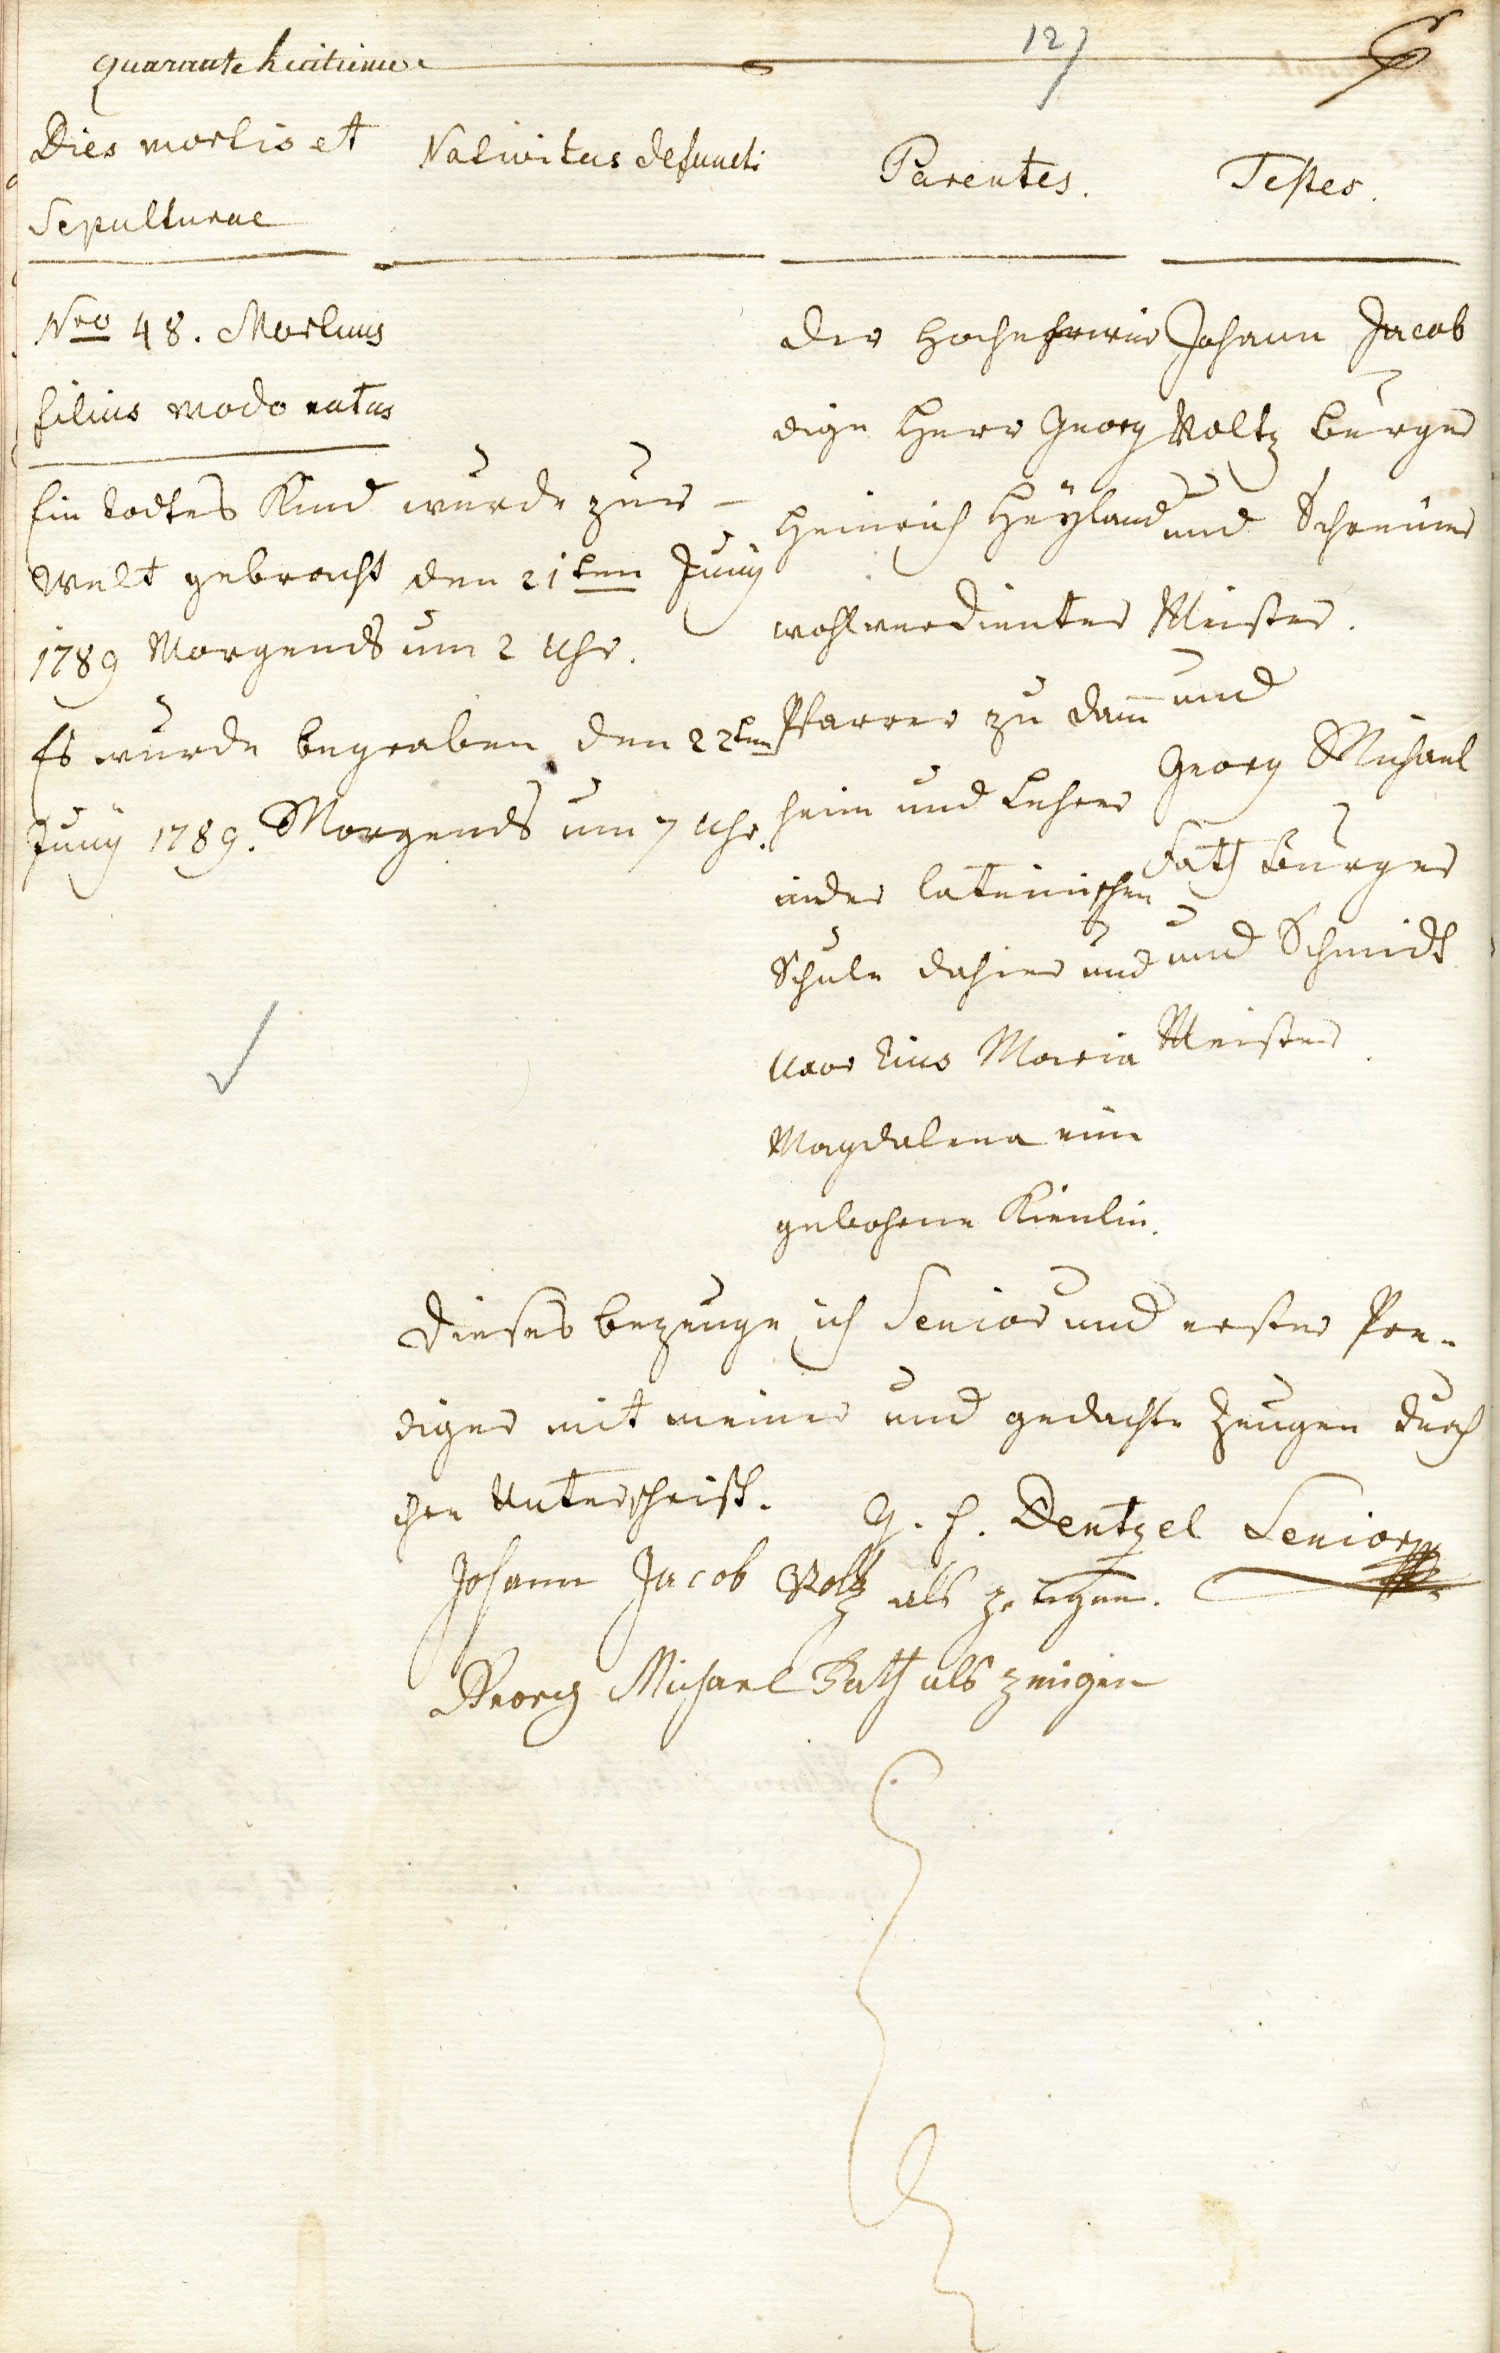 quarante huitieme
127
Dies mortis et
Sepulturae
Nativitas defuncti
Parentes.
Testes.
Nro 48. Mortuus
filius modo natus
Ein todtes Kind wurde zur
Welt gebracht den 21ten Juny
1789 Morgends um 2 Uhr.
Es wurde begraben den 22ten
Juny 1789. Morgends um 7 Uhr.
Der Hochehrwür
dige Herr Georg
Heinrich Heyland
wohlverdienter
Pfarrer zu Damm
heim und Lehrer
in der lateinischen
Schule dahier und
Uxor Eius Maria
Magdalena eine
gebohrne Kienlin.
Johann Jacob
Voltz Burger
und Schreiner
Meister.
und
Georg Michael
Fath Burger
und Schmidt
Meister
Dieses bezeuge ich Senior und erster Pre-
diger mit meiner und gedachte Zeugen durch
ihre Unterschrift.
G. H. Dentzel Senior
Johann Jacob Voltz als zeugen.
Georg Michael Fath als zeugen